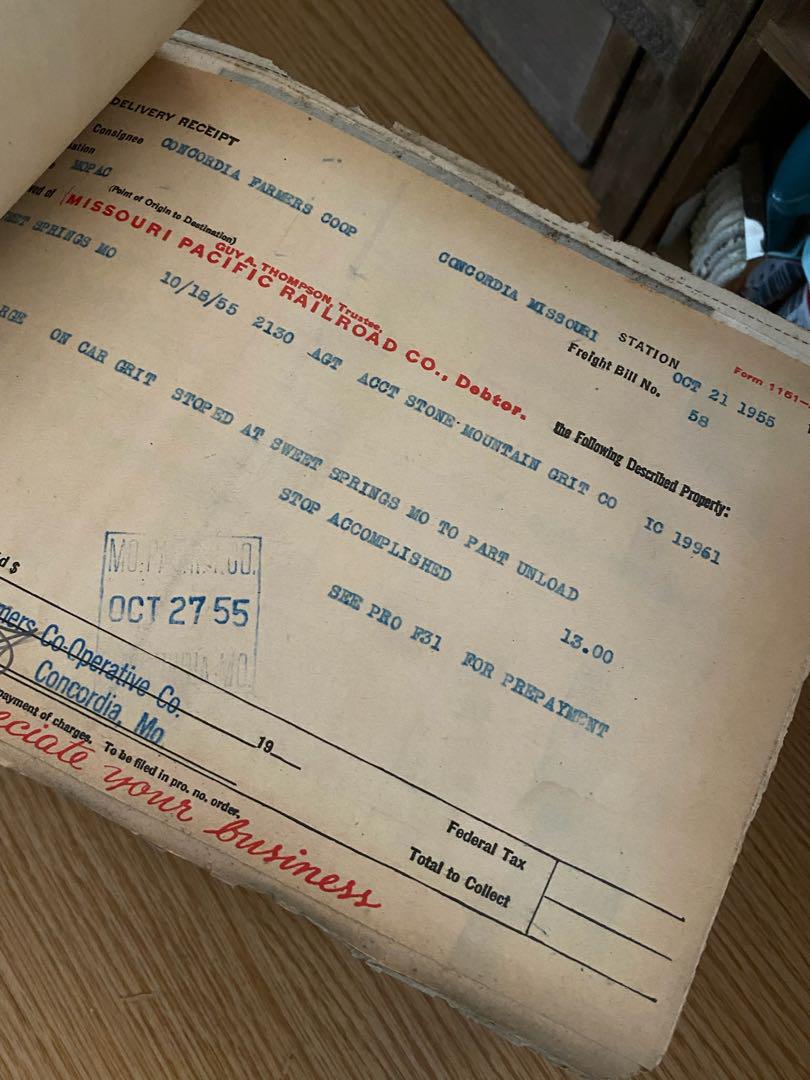 DELIVERY RECEIPT
Consignee CONCORDIA FARMERS COOP CONCORDIA MISSOURI STATION OCT 21 1955
ation MOPAC (Point of Origin to Destination) Freight Bill No. 58
Form 1151-
GUY A. THOMPSON, Trustee,
ved of (MISSOURI PACIFIC RAILROAD CO., Debtor. the Following Described Property:
EET SPRINGS MO 10/18/55 2130 AGT ACCT STONE MOUNTAIN GRIT CO IC 19961
RGE ON CAR GRIT STOPED AT SWEET SPRINGS MO TO PART UNLOAD 13.00
STOP ACCOMPLISHED
SEE PRO F31 FOR PREPAYMENT
MO. CO.
OCT 27 55
MO.
d $
mers Co-Operative Co.
Concordia, Mo
19
payment of charges. To be filed in pro. no. order.
eciate your business
Federal Tax
Total to Collect